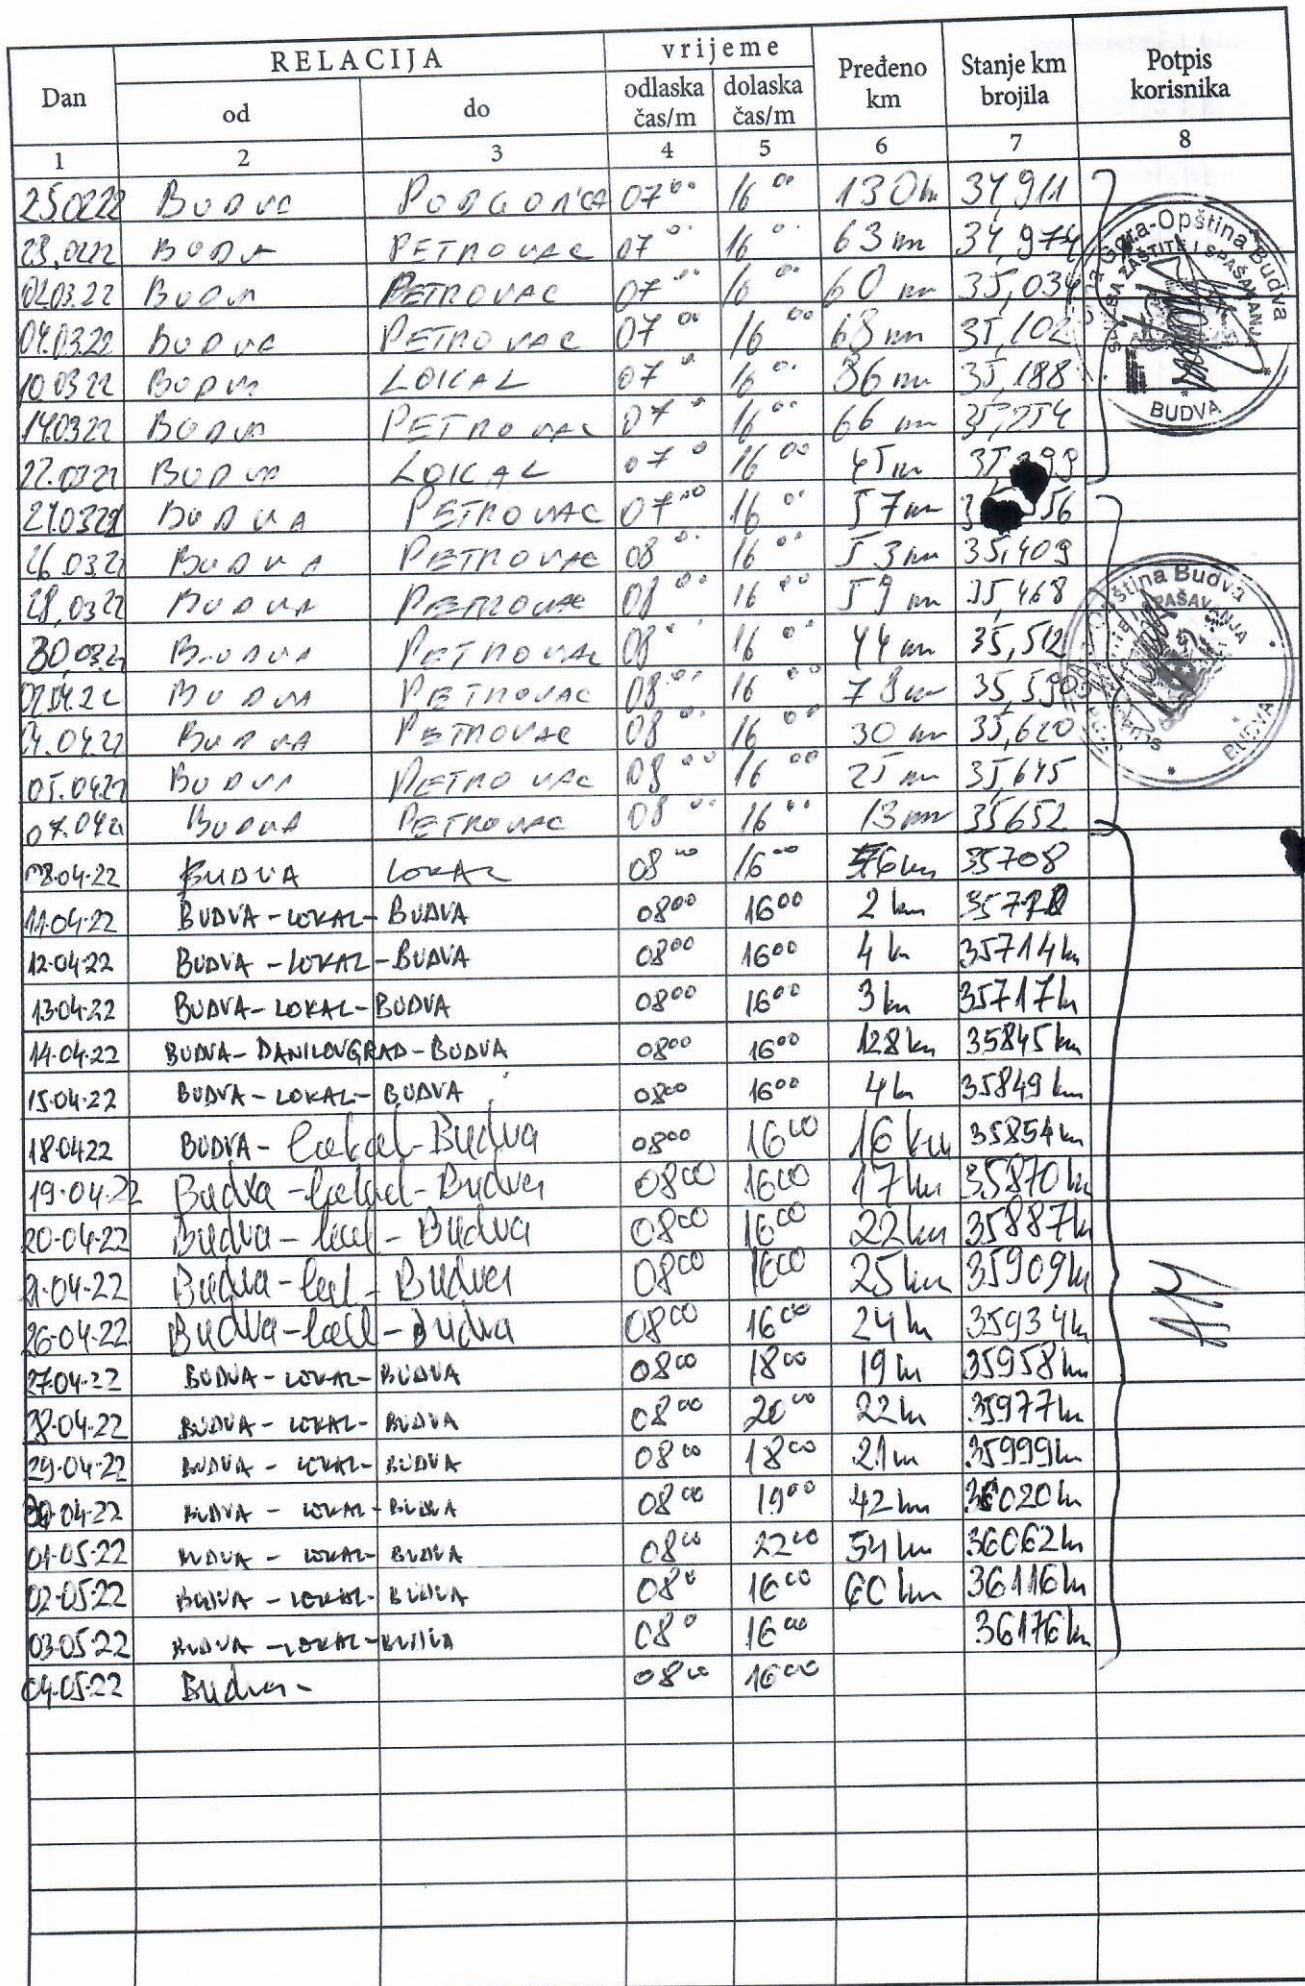 Dan RELACIJA vrijeme Pređeno km Stanje km brojila Potpis korisnika
od do odlaska čas/m dolaska čas/m
1 2 3 4 5 6 7 8
250222 BUDVA PODGORICA 07 00 16 00 130 km 34,911
28,0222 BUDVA PETROVAC 07 16 63 km 34,974
02.03.22 BUDVA PETROVAC 07 16 60 km 35,034
04.03.22 BUDVA PETROVAC 07 00 16 00 68 km 35,102
10.03 22 BUDVA LOKAL 07 16 86 km 35,188
14.03 22 BUDVA PETROVAC 07 16 00 66 km 35,254
22.03 22 BUDVA LOKAL 07 16 00 45 km
24.03 22 BUDVA PETROVAC 07 00 16 57 km 56
26.03.22 BUDVA PETROVAC 08 16 53 km 35,409
28,03 22 BUDVA PETROVAC 08 16 59 km 35,468
30 03.22 BUDVA PETROVAC 08 16 44 km 35,512
02.04.22 BUDVA PETROVAC 08 16 78 km 35,590
04.04.22 BUDVA PETROVAC 08 16 00 30 km 35,620
05.04.22 BUDVA PETROVAC 08 00 16 00 25 km 35,645
07.04 22 BUDVA PETROVAC 08 16 13 km 35652
08.04.22 BUDVA LOKAL 08 00 16 00 56 km 35708
11.04.22 BUDVA - LOKAL - BUDVA 08 00 16 00 2 km
12.04.22 BUDVA - LOKAL - BUDVA 08 00 16 00 4 km 35714 km
13.04.22 BUDVA - LOKAL - BUDVA 08 00 16 00 3 km 35717 km
14.04.22 BUDVA - DANILOVGRAD - BUDVA 08 00 16 00 128 km 35845 km
15.04.22 BUDVA - LOKAL - BUDVA 08 00 16 00 4 km 35849 km
18.04 22 BUDVA - Lokal - Budva 08 00 16 00 16 km 35854 km
19.04.22 Budva - Lokal - Budva 08 00 16 00 17 km 35870 km
20.04.22 Budva - - Budva 08 00 16 00 22 km 35887 km
21.04.22 Budva - - Budva 08 00 16 00 25 km 35909 km
26.04.22 Budva - - Budva 08 00 16 00 24 km 35934 km
27.04.22 BUDVA - LOKAL - BUDVA 08 00 18 00 19 km 35958 km
28.04.22 BUDVA - LOKAL - BUDVA 08 00 20 00 22 km 35977 km
29.04.22 BUDVA - LOKAL - BUDVA 08 00 18 00 21 km 35999 km
30.04.22 BUDVA - LOKAL - BUDVA 08 00 19 00 42 km 36020 km
01.05.22 BUDVA - LOKAL - BUDVA 08 00 22 00 54 km 36062 km
02.05.22 BUDVA - LOKAL - BUDVA 08 0 16 00 60 km 36116 km
03.05.22 BUDVA - LOKAL - BUDVA 08 0 16 00 36176 km
04.05.22 Budva - 08 00 16 00
Gora-Opština Budva
ZAŠTITE I SPAŠAVANJA
BUDVA
Opština Budva
SPAŠAVANJA
BUDVA